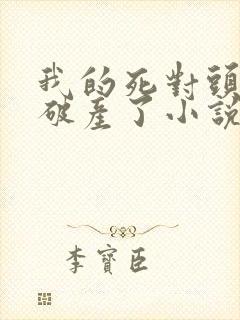 我的死對頭
破產了小說
李寶臣